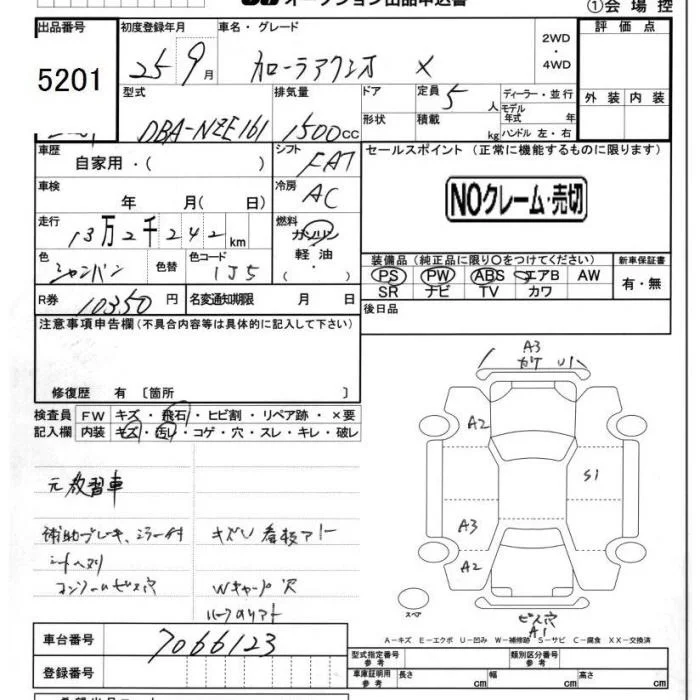 オークション出品申込書
①会場控
出品番号 初度登録年月 車名・グレード 2WD・4WD 評価点
5201 25 9月 カローラアクシオ X
型式 排気量 ドア 定員 5人 ディーラー・並行 外装 内装
モデル年式 年
DBA-NZE161 1500cc 形状 積載 kg ハンドル 左・右
車歴 自家用・( ) シフト FAT セールスポイント (正常に機能するものに限ります)
車検 年 月(日) 冷房 AC NOクレーム・売切
走行 13万2千242km 燃料 ガソリン 軽油 (・)
装備品(純正品に限り〇をつけてください) 新車保証書
色 シャンパン 色替 色コード 1J5 PS PW ABS エアB AW 有・無
SR ナビ TV カワ
R券 10350円 名変通知期限 月 日 後日品
注意事項申告欄(不具合内容等は具体的に記入して下さい)
A3
カケ U1
修復歴 有 〔箇所 〕
検査員 FW キズ・飛石・ヒビ割・リペア跡・×要
記入欄 内装 キズ・汚れ・コゲ・穴・スレ・キレ・破レ
A2
元教習車
S1
補助ブレーキ、ミラー付 キズU 看板アト
A3
A2
コンソールビス穴
スペア
ビス穴
A1
A-キズ E-エクボ U-凹み W-補修跡 S-サビ C-腐食 XX-交換済
車台番号 7066123
型式指定番号 参考 類別区分番号 参考
登録番号 車庫証明用 参考 長さ cm 幅 cm 高さ cm